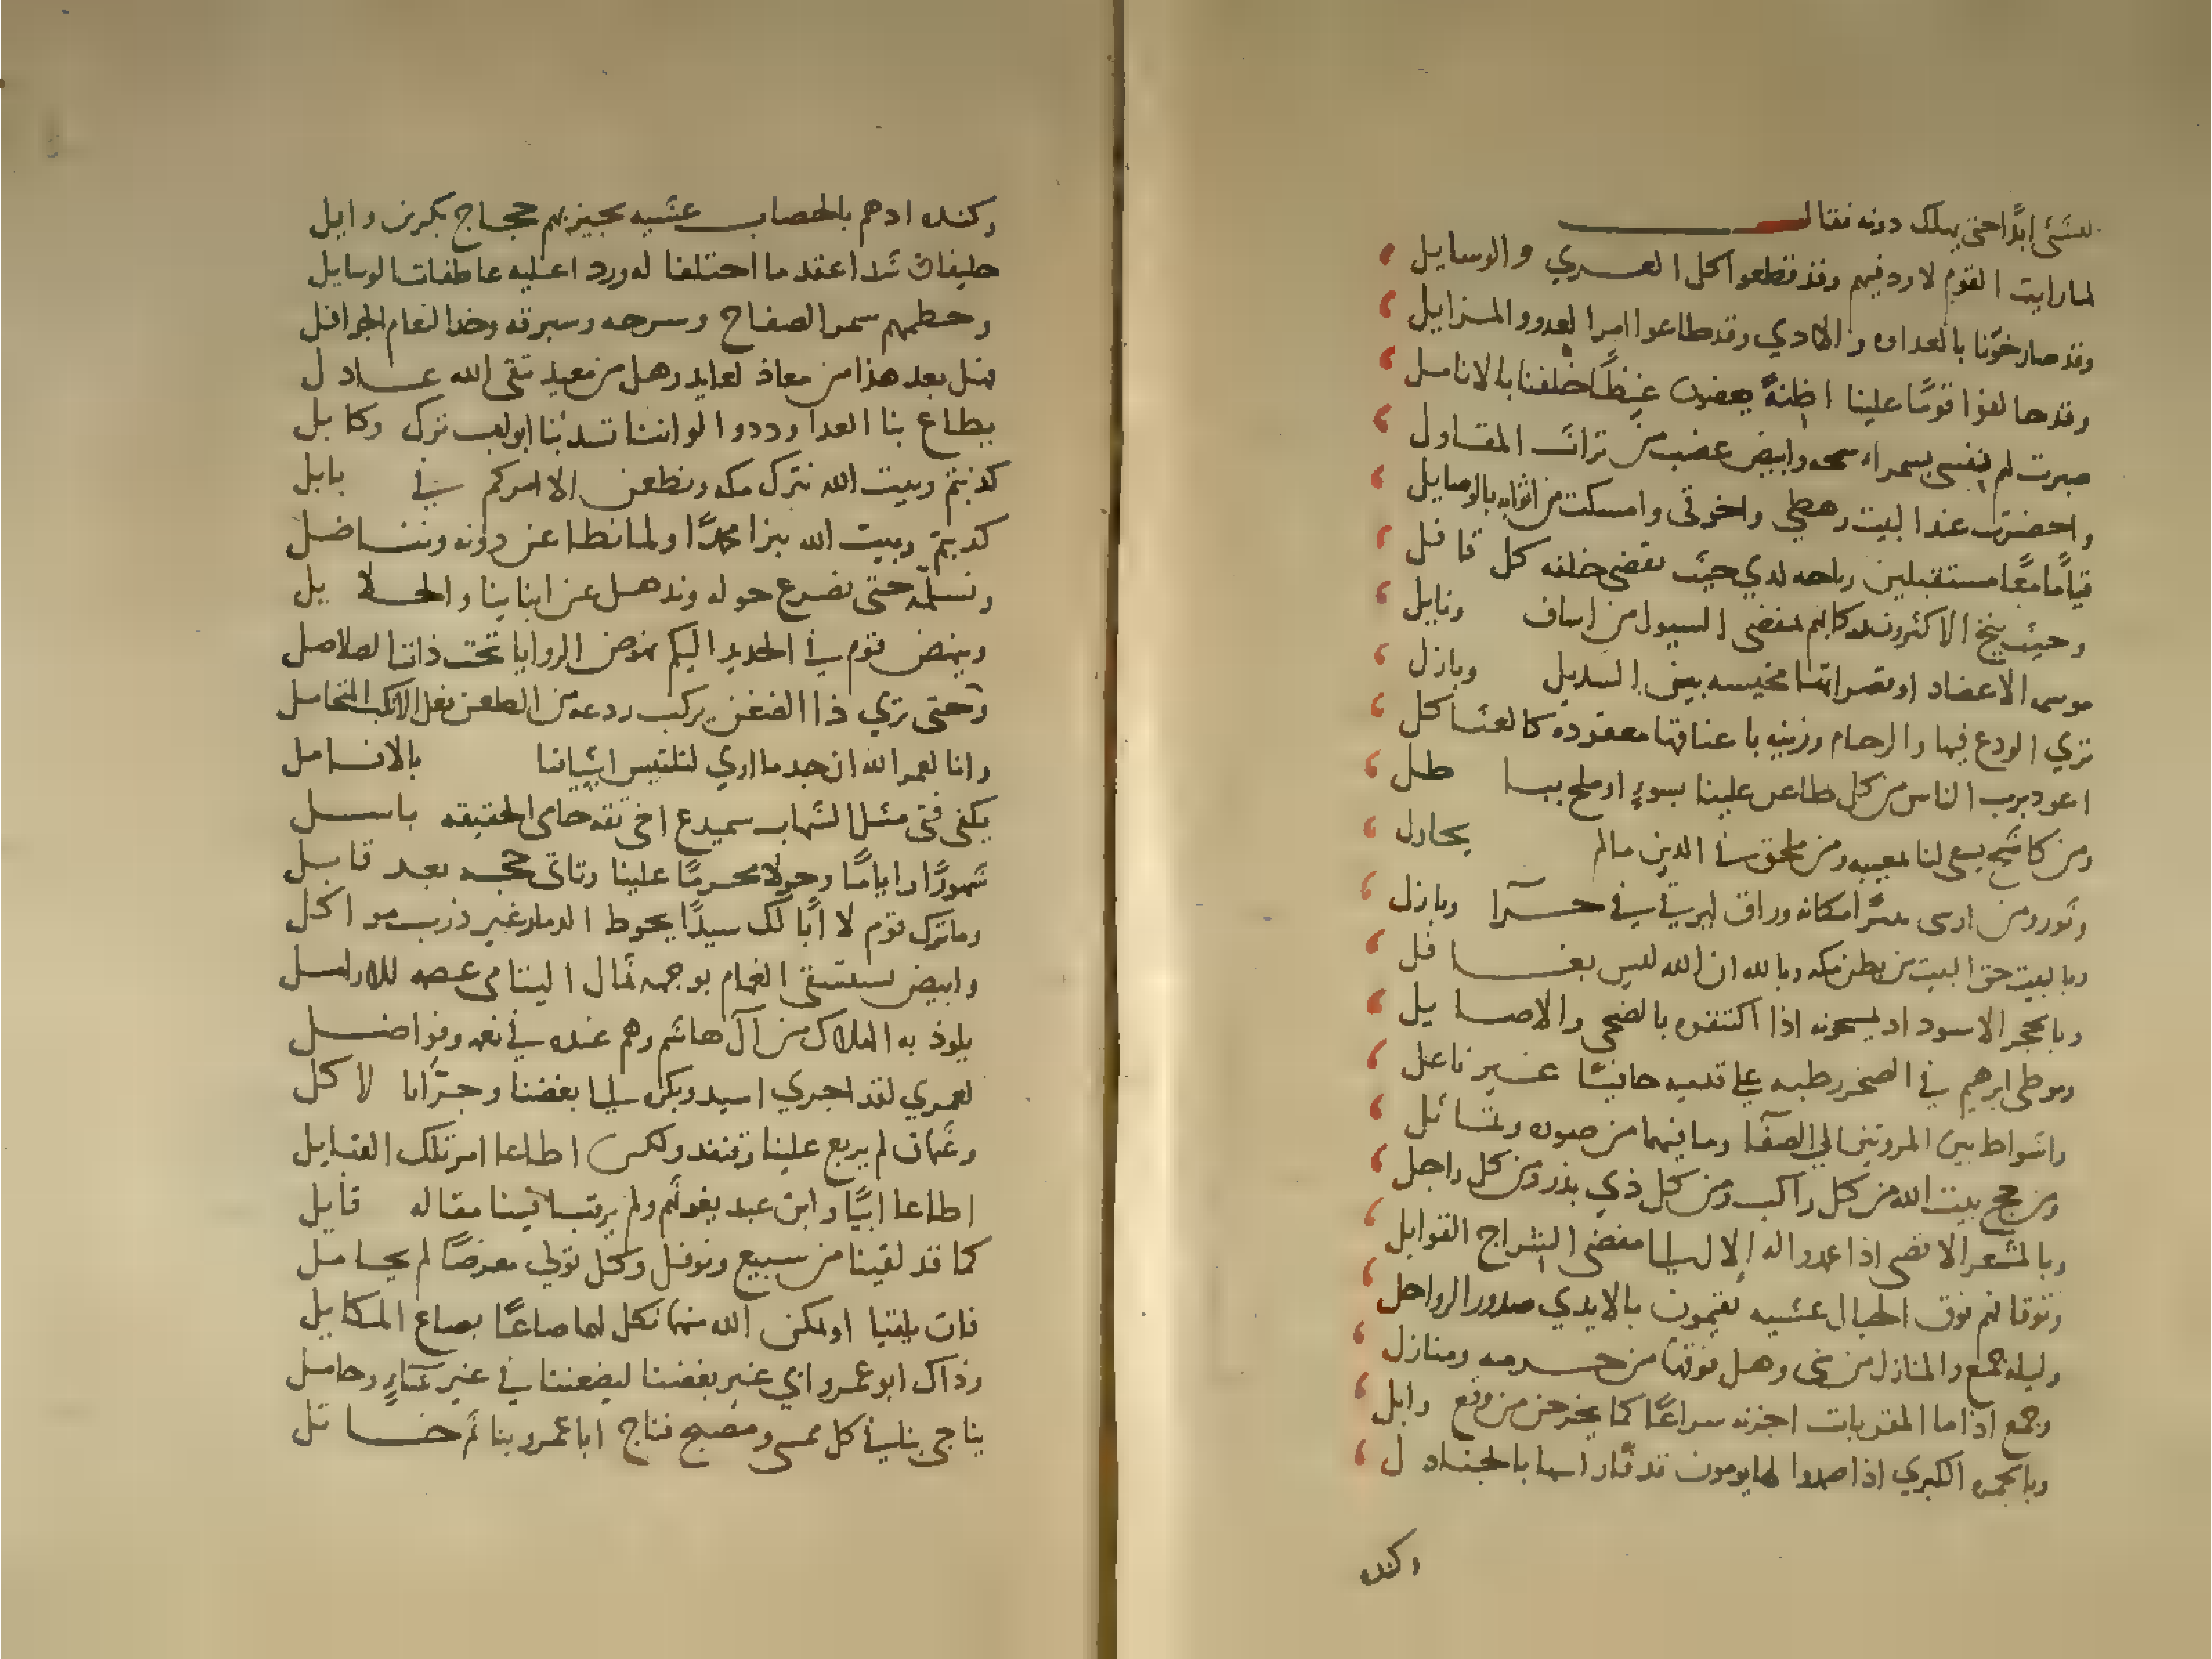 لعشئ ابدًا حتى يهلك دونه فقال
لما رايت القوم لا ود فيهم وقد قطعوا كل العري والوسايل
وقد صارخونا بالعداوه والادي وقد طاعوا امرا لعدو والمزايل
وقد حالفوا قومًا علينا اظنهً يعضون غيظًا خلفنا بالانامل
صبرت لهم نفسى بسمراء سمحه وابيض عضب من تراث المقاول
واحضرت عند البيت رهطي واخوتى وامسكت من اثوابه بالوصايل
قيامًا معًا مستقبلين رتاجه لدي حيث يقضى خلفه كل نافل
وحيث ينخ الاكثرون ركابهم بمفضى السيول من اساف ونايل
موسمى الاعضاد او قصراتها مخيسه بين السديل وبازل
تري الودع فيها والرخام وزينه باعناقها معقوده كالعثاكل
اعود برب الناس من كل طاعن علينا بسوءٍ او ملح ببا طل
ومن كاشح يسعى لنا بمعيبه ومن ملحق في الدين مالم يحاول
وثور ومن ارسى ثبيرًا مكانه وراق ليرقي في حرآ وبازل
وبالبيت حق البيت من بطن مكه وبالله ان الله ليس بغافل
وبالحجر الاسود اد يمسحونه اذا اكتنفوه بالضحي والاصايل
وموطى ابرهيم في الصخر رطبه علي قدميه حافيًا غير ناعل
واشواط بين المروتين الي الصفا وما فيهما من صوره وتماثل
ومن حج بيت الله من كل راكب ومن كل ذي نذر ومن كل راجل
وبالمشعر الاقصى اذا عمدوا له إلال الى مفضى الشراج القوابل
وتوقافهم فوق الجبال عشيه يقيمون بالايدي صدور الرواحل
وليله جمع والمنازل من منى وهل فوقها من حرمه ومنازل
وجمع اذا ما المقربات اجزنه سراعًا كما يخرجن من وقع وابل
وبالجمره الكبري اذا صمدوا لها يومون قدثًا راسها بالجنادل
وكنده
وكنده ادهم بالحصاب عشيه تجيز بهم حجاج بكر بن وايل
حليفان شدا عقد ما احتلفا له وردا عليه عاطفات الوسايل
وحطمهم سمر الصفاح وسرحه وسبرقه وخد النعام الجوافل
فهل بعد هذا من معاذ لعايد وهل من معيذ تقى الله عادل
يطاع بنا العدا وددوا لو اننا تسد بنا ابواب ترك وكابل
كذبتم وبيت الله نترك مكه ونظعن الا امركم في بابل
كدبتم وبيت الله نبزا محمدًا ولما نطاعن دونه ونناضل
ونسلمه حتى نصرع حوله وندهل عن ابناينا والحلايل
وينهض قوم في الحديد اليكم نهوض الروايا تحت ذات الصلاصل
وحتى تري ذا الضغن يركب ردعه من الطعن فعل الانكب المتحامل
وانا لعمر الله ان جد ما اري لتلتبس اسيافنا بالانامل
بكفى فتى مثل الشهاب سميدع اخى ثقه حامى الحقيقه باسل
شهورًا واياما وحولا محرمًا علينا وتاتى حجه بعد قابل
وما ترك قوم لا ابًا لك سيدًا يحوط الدمار غير ذرب مواكل
وابيض يستسقى الغمام بوجهه ثمال اليتامى عصمه للارامل
يلوذ به الهلاك من آل هاشم وهم عنده في نعمه وفواضل
لعمري لقد اجري اسيد وبكره الي بغضنا وجزانا لاكل
وعثمان لم يربع علينا وقنفد ولكن اطاعا امر تلك القبايل
اطاعا ابيًا وابن عبد يغوثهم ولم يرقبا فينا مقاله قايل
كما قد لقينا من سبيع ونوفل وكل تولي معرضًا لم يجامل
فان يلقيا او يمكن الله منهما نكل لهما صاعًا بصاع المكايل
وذاك ابو عمرو ابي غير بغضنا ليضعننا في غير شاءٍ وحامل
يناجى بنا في كل ممسى ومصبح فناج ابا عمرو بنا ثم خاتل